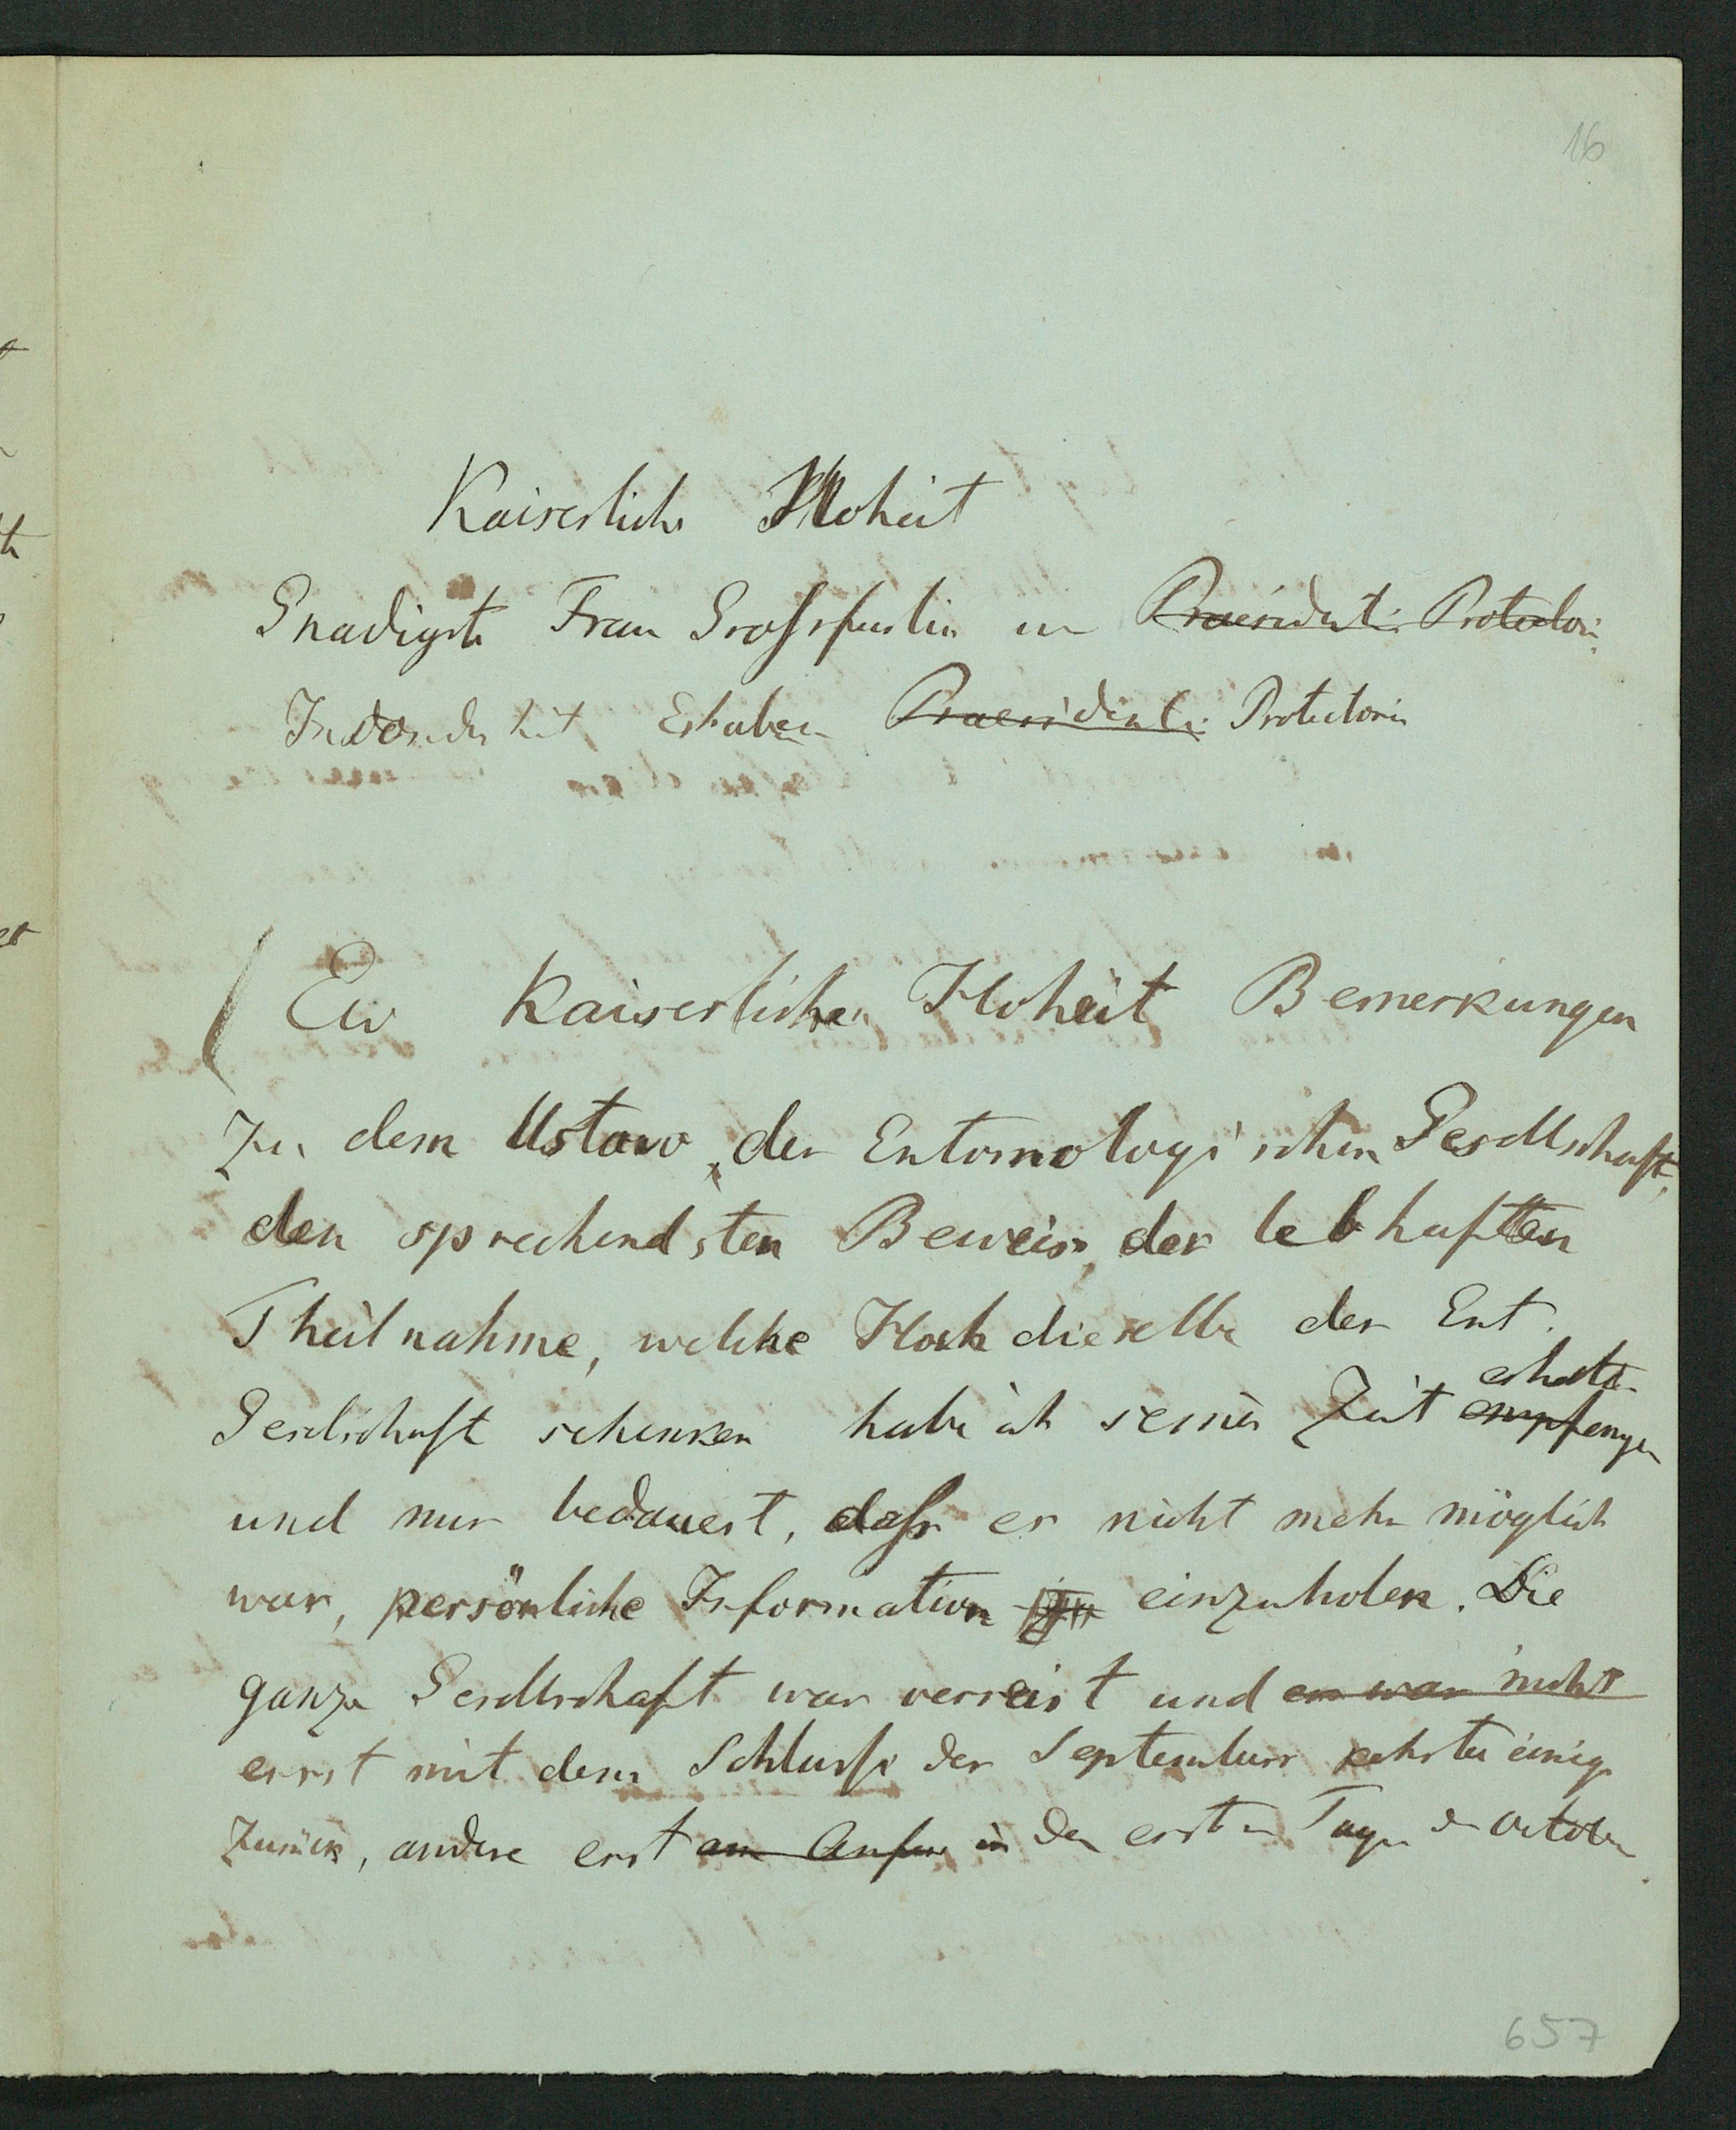 16
Kaiserliche Hoheit
Gnädigste Frau Grossfürstin Praesidentin Protectorin
Insonderheit Erhabene Praesidentin Protectorin
Ew Kaiserlichen Hoheit Bemerkungen
zu dem Ustaw der Entomologischen Gesellschaft,
den sprechendsten Beweis, der lebhaften
Theilnahme, welche Hochdieselbe der Ent.
erhalten
Gesellschaft schenken habe ich seiner Zeit empfangen
und nur bedauert, dass es nicht mehr möglich
war, persönliche Information einzuholen. Die
ganze Gesellschaft war verreist und es war nicht
erst mit dem Schlusse des Septembers kehrten einige
zurück, andere erst am Anfan in den ersten Tagen des October
657